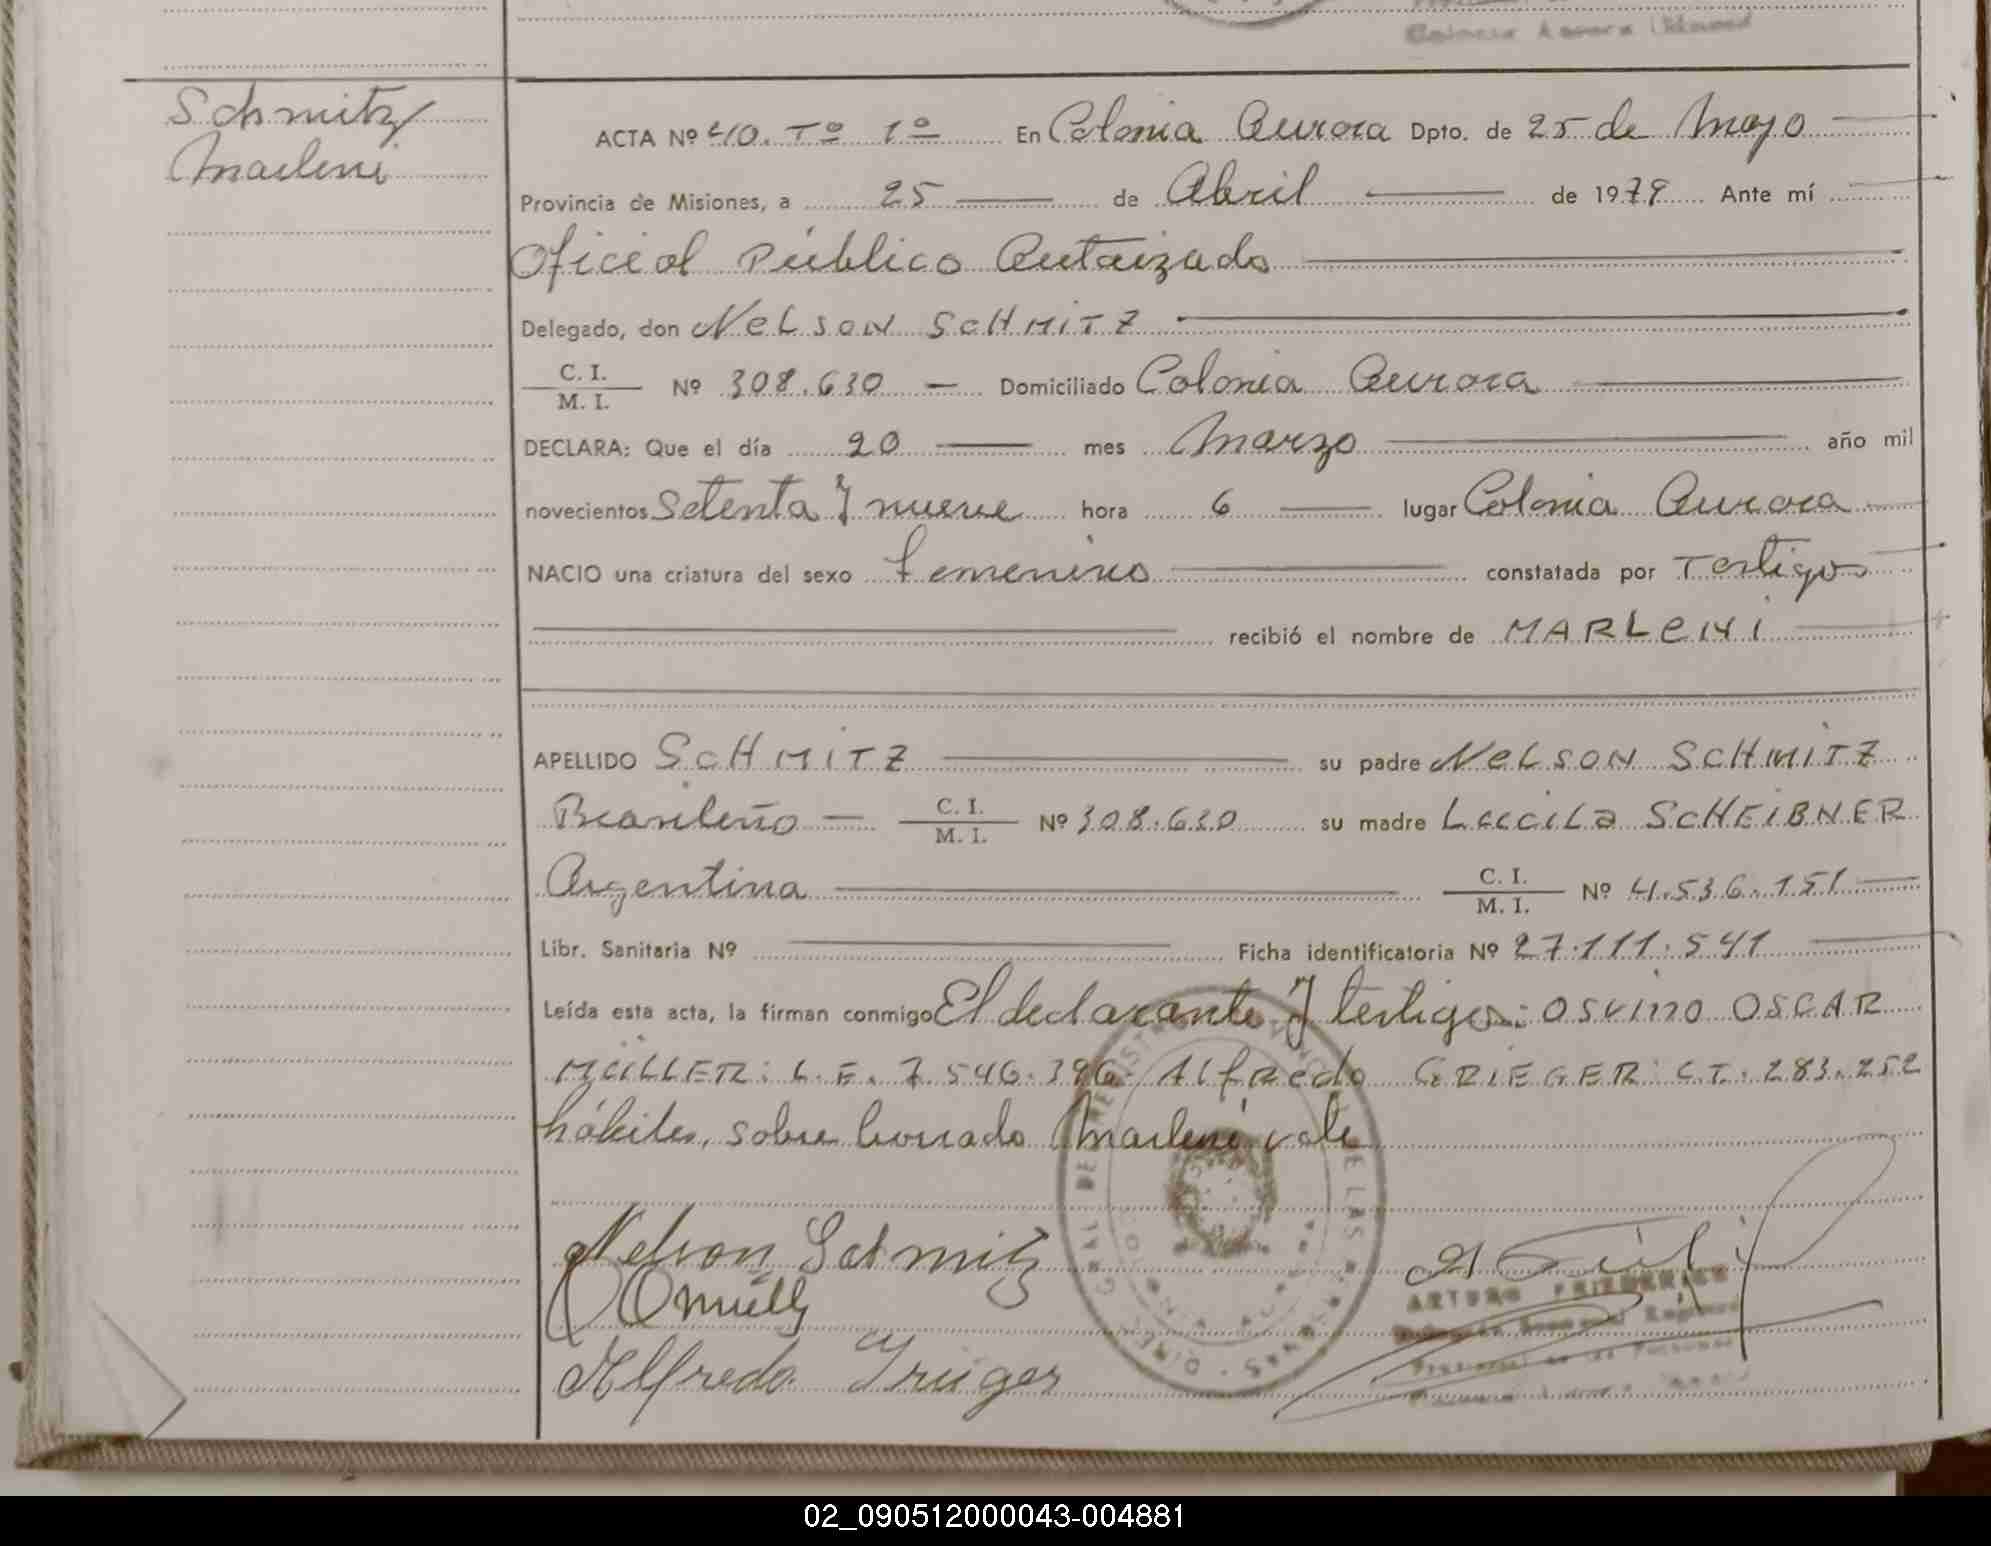 Colonia Aurora (Misiones)
Schmitz
Marleni
ACTA Nº 40. Tº 1º En Colonia Aurora Dpto. de 25 de Mayo
Provincia de Misiones, a 25 de Abril de 1979 Ante mí
Oficial Público Autorizado
Delegado, don NELSON SCHMITZ
C. I.
M. I. Nº 308.630 — Domiciliado Colonia Aurora
DECLARA: Que el día 20 mes Marzo año mil
novecientos Setenta y nueve hora 6 lugar Colonia Aurora
NACIO una criatura del sexo femenino constatada por Testigos
recibió el nombre de MARLENI
APELLIDO SCHMITZ su padre NELSON SCHMITZ
Brasileño — C. I.
M. I. Nº 308.630 su madre LUCILA SCHEIBNER
Argentina C. I.
M. I. Nº 4.536.151
Libr. Sanitaria Nº Ficha identificatoria Nº 27.111.541
Leída esta acta, la firman conmigo El declarante y testigos: OSVINO OSCAR
MÜLLER: L.E. 7.546.396 Alfredo GRIEGER: C.I. 283.252
hábiles, sobre borrado Marleni vale
Nelson Schmitz
OMüller
Alfredo Grieger
ARTURO FRIEDERICH
Provincial de las Personas
02_090512000043-004881